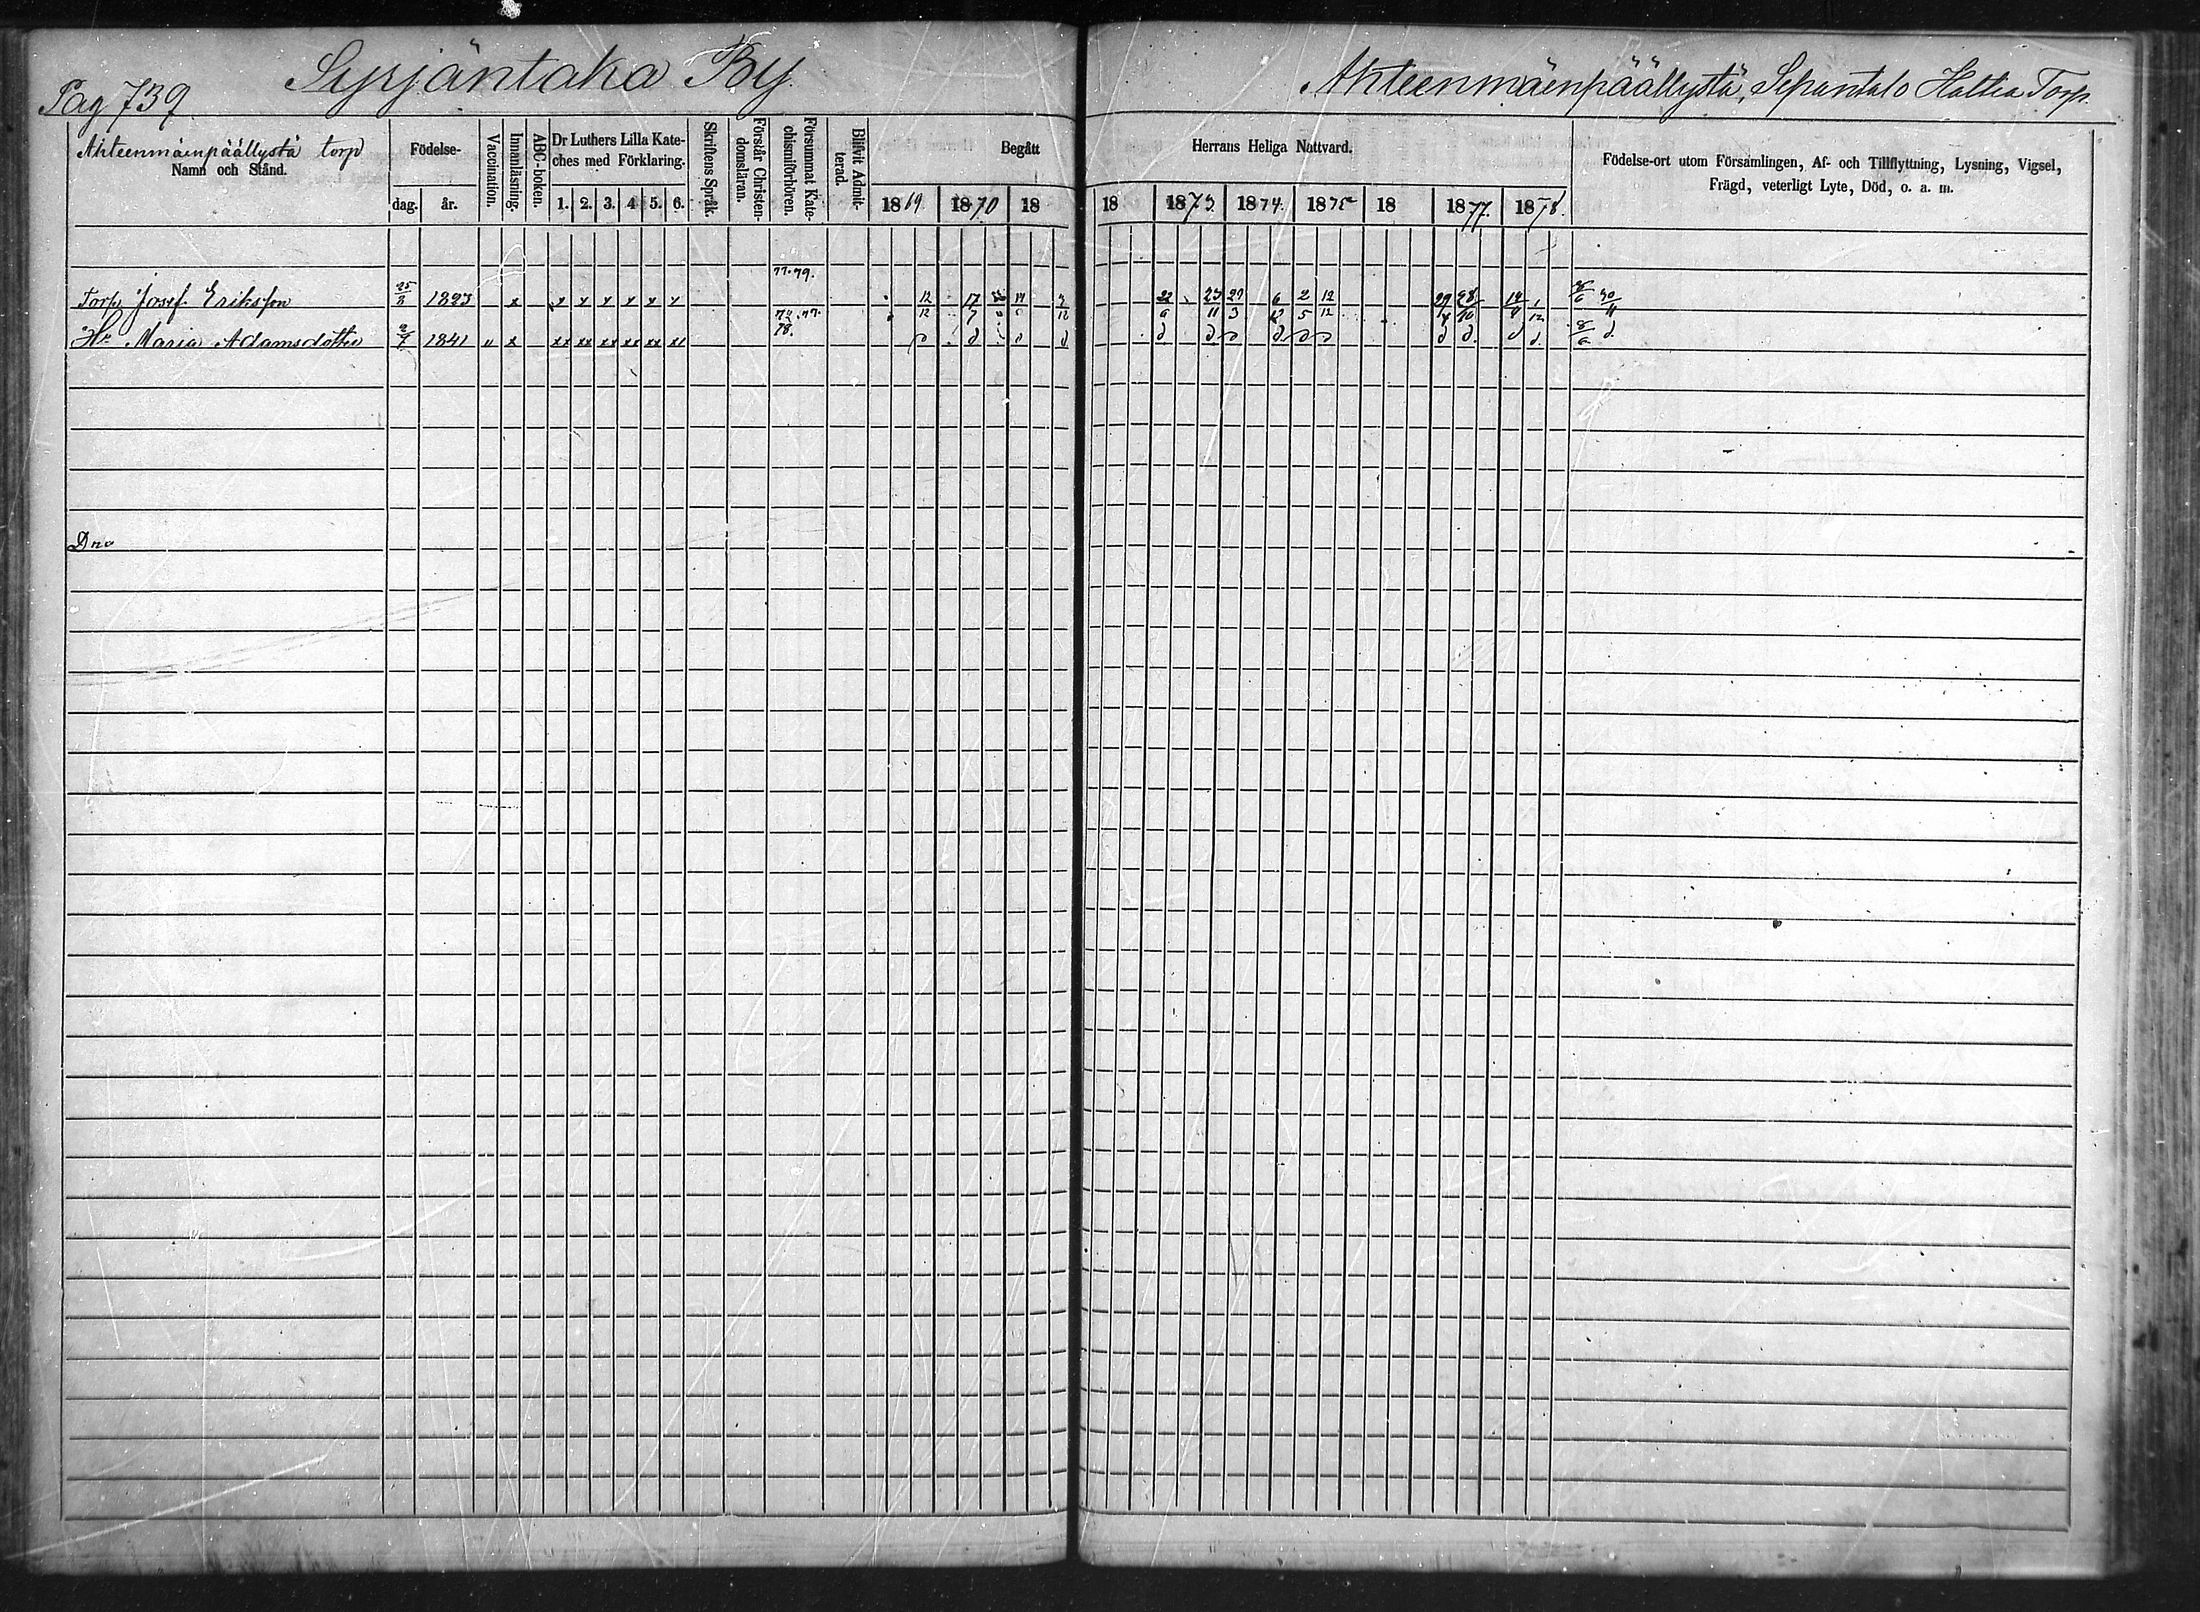 Pag 739. Syrjäntaka By.
Ahteenmäenpäällystä, Sepäntalo Hattea Torp.
Ahteenmäenpäällystä torp
Namn och Stånd.
Födelse-
dag. år.
Vaccination.
Innanläsning.
ABC-boken.
Dr Luthers Lilla Kate-
ches med Förklaring.
1. 2. 3. 4 5. 6.
Skriftens Språk.
Förstår Christen-
domsläran.
Försummat Kate-
chismiförhören.
Blifvit Admit-
terad.
Begått Herrans Heliga Nattvard.
1869 1870 18 18 1873. 1874. 1875 18 1877. 1878.
Födelse-ort utom Församlingen, Af- och Tillflyttning, Lysning, Vigsel,
Frägd, veterligt Lyte, Död, o. a. m.
77.79.
Torp. Josef Eriksson 25/3 1823 x x x x x x x
72.77.
78.
Hu Maria Adamsdotter 2/7 1841 " x xx xx xx xx xx xx
Dno